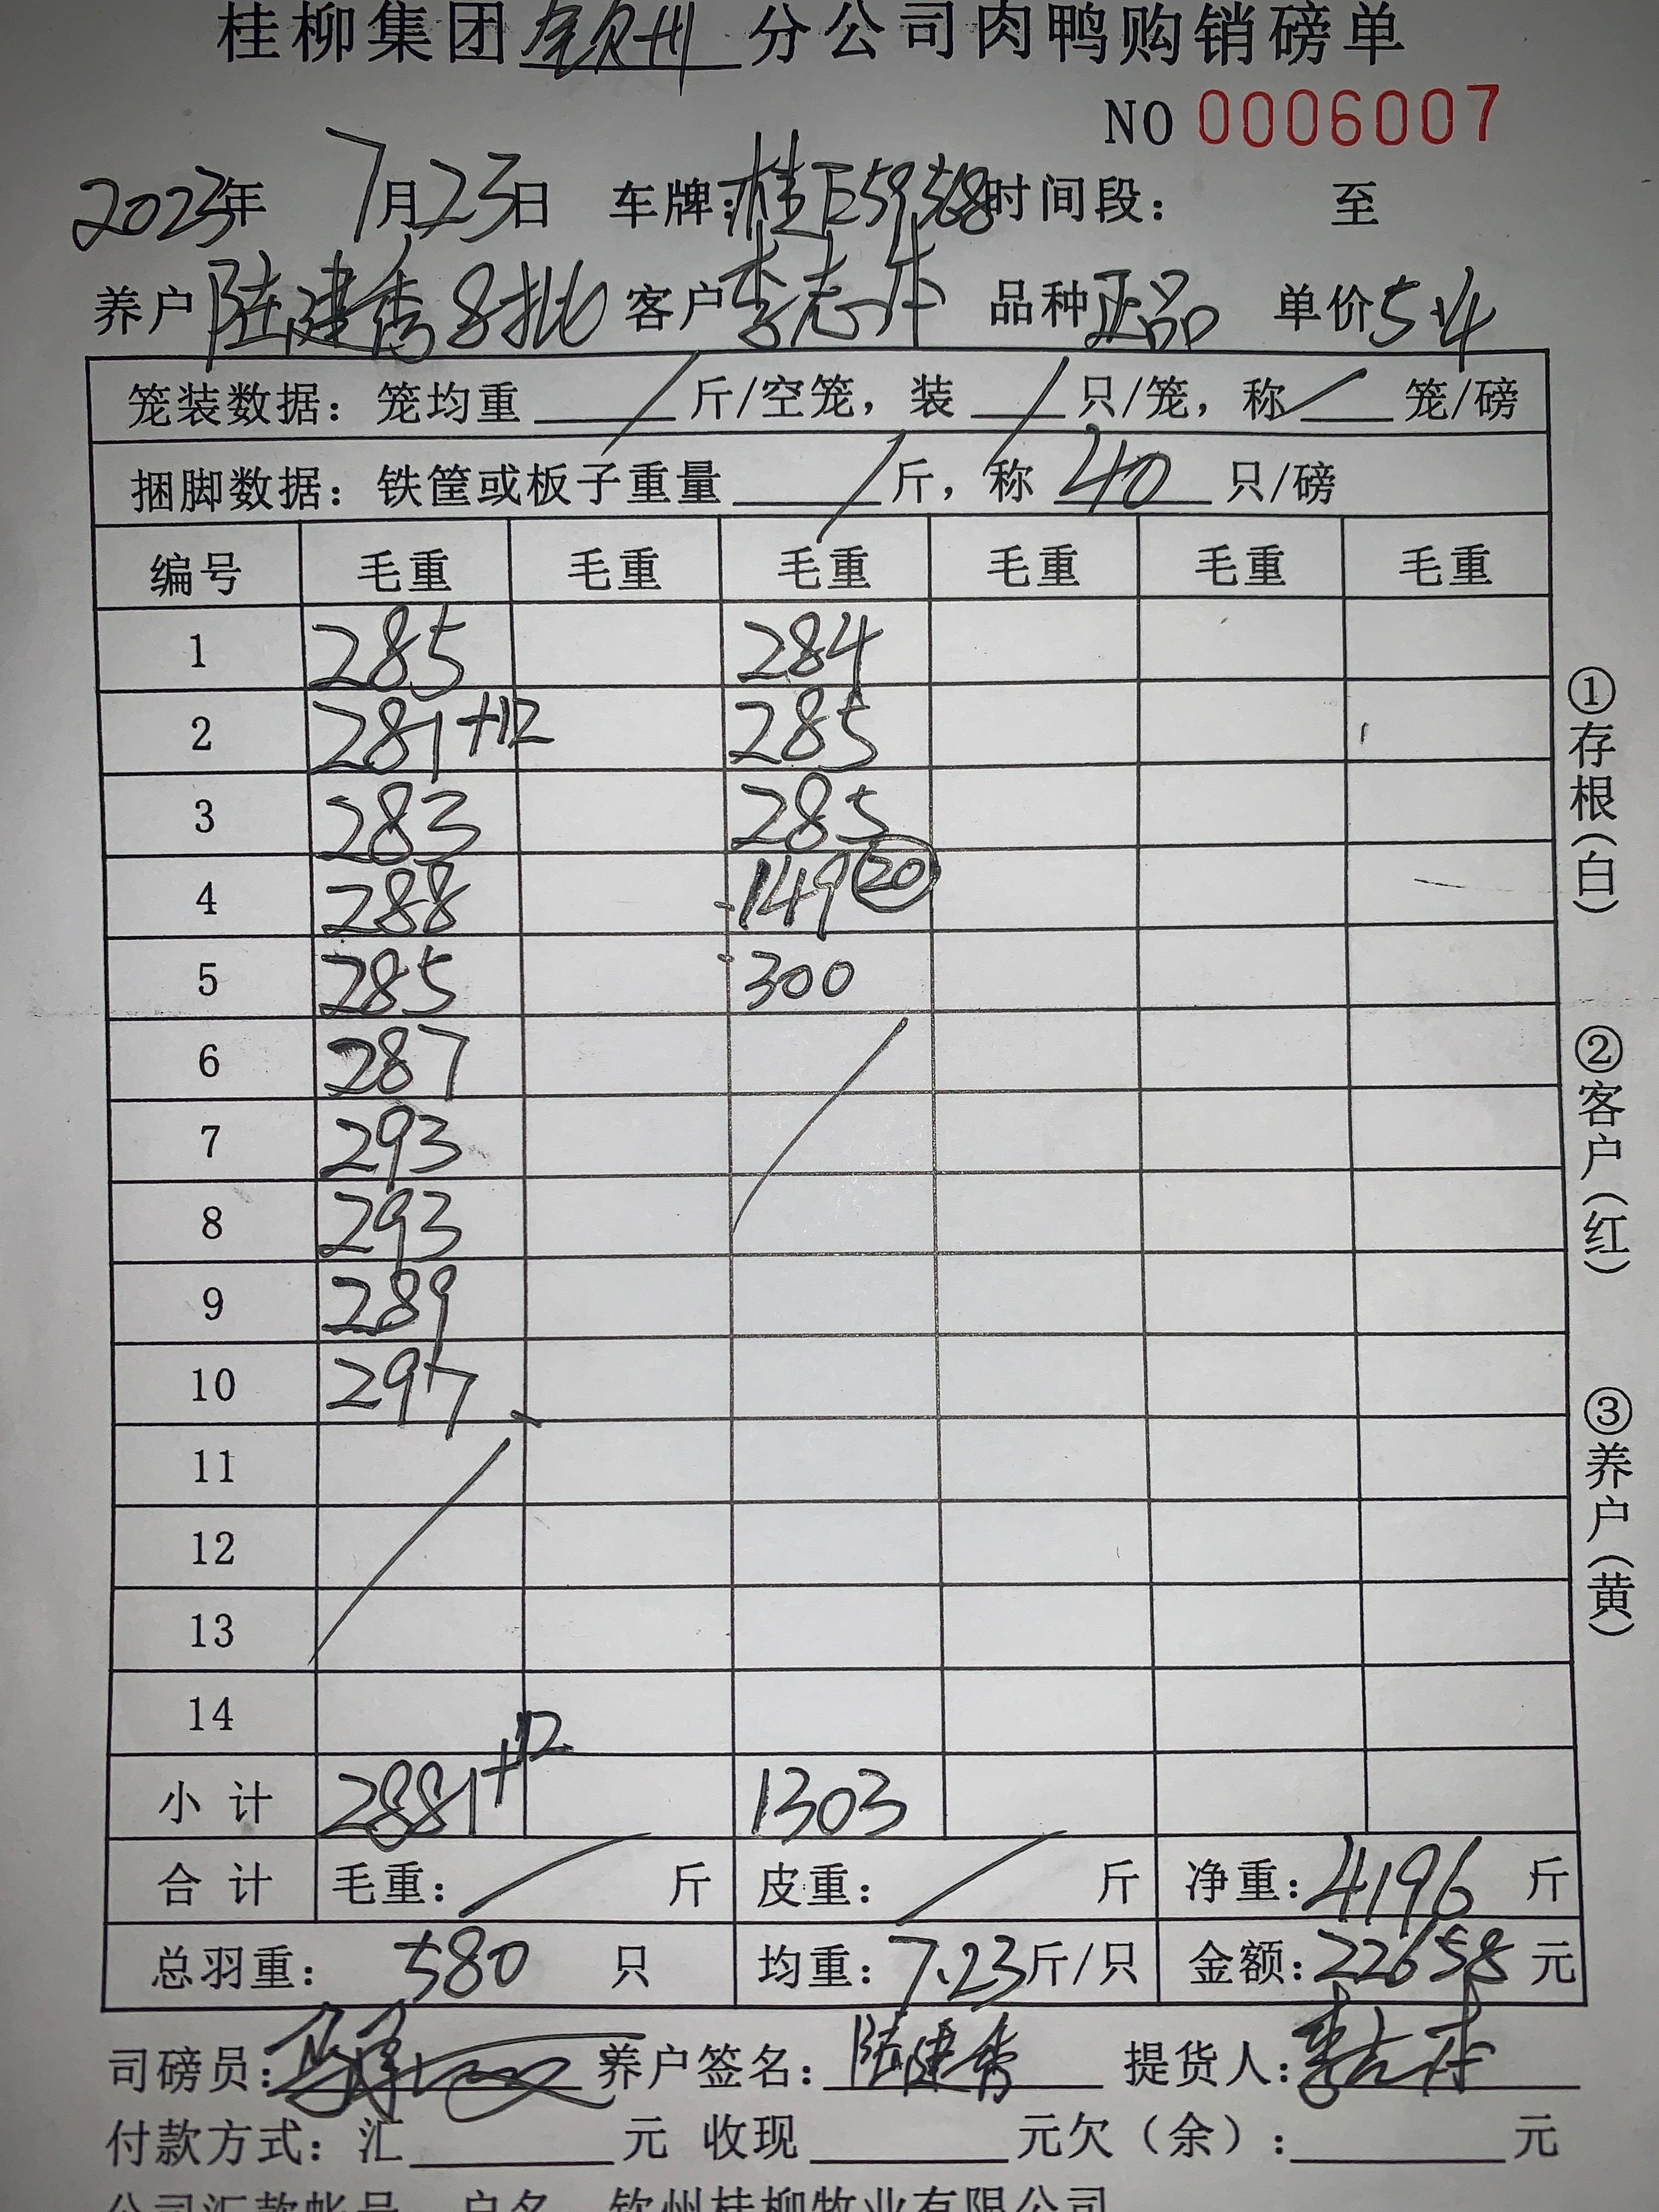 桂柳集团钦州分公司肉鸭购销磅单
NO 0006007
2023年 7月23日 车牌:桂E59568时间段: 至
养户 陆建秀8批 客户 李志 品种 正品 单价 5.4
笼装数据: 笼均重 / 斤/空笼, 装 / 只/笼, 称 / 笼/磅
捆脚数据: 铁筐或板子重量 / 斤, 称 40 只/磅
编号 毛重 毛重 毛重 毛重 毛重 毛重
1 285 284
2 281+12 285
3 283 285
4 288 149 20
5 285 300
6 287
7 293
8 293
9 289
10 297
11
12
13
14
小计 2881+12 1303
合计 毛重: / 斤 皮重: / 斤 净重: 4196 斤
总羽重: 580 只 均重: 7.23斤/只 金额: 22658 元
司磅员: 养户签名: 陆建秀 提货人: 李志
付款方式: 汇 元 收现 元欠(余): 元
公司汇款帐号 户名 钦州桂柳牧业有限公司
①存根(白)
②客户(红)
③养户(黄)